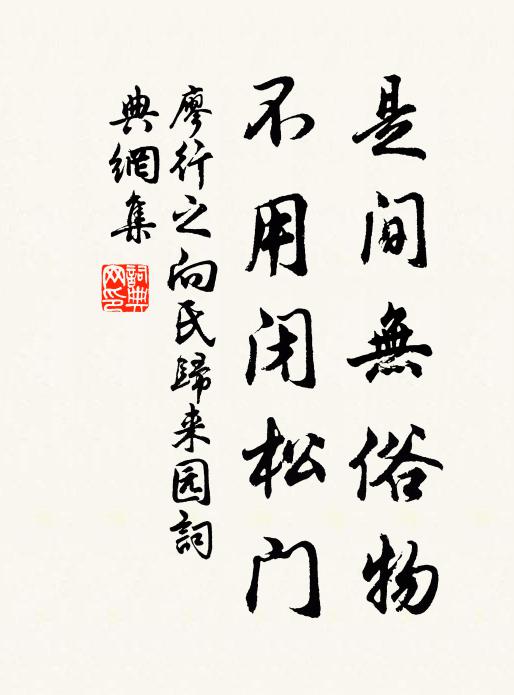 是间無俗物
不用闭松门
廖行之向氏歸来园詞
典網集
詞典网印